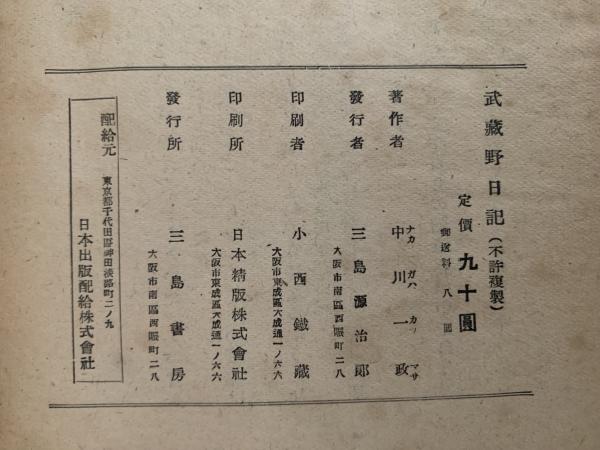 武藏野日記(不許複製)
定價 九十圓
郵送料 八圓
著作者 中川一政
ナカ ガハ カズ マサ
發行者 三島源治郎
大阪市南區西賑町二八
印刷者 小西鐵藏
大阪市東成區大成通一ノ六六
印刷所 日本精版株式會社
大阪市東成區大成通一ノ六六
發行所 三島書房
大阪市南區西賑町二八
配給元 東京都千代田區神田淡路町二ノ九
日本出版配給株式會社